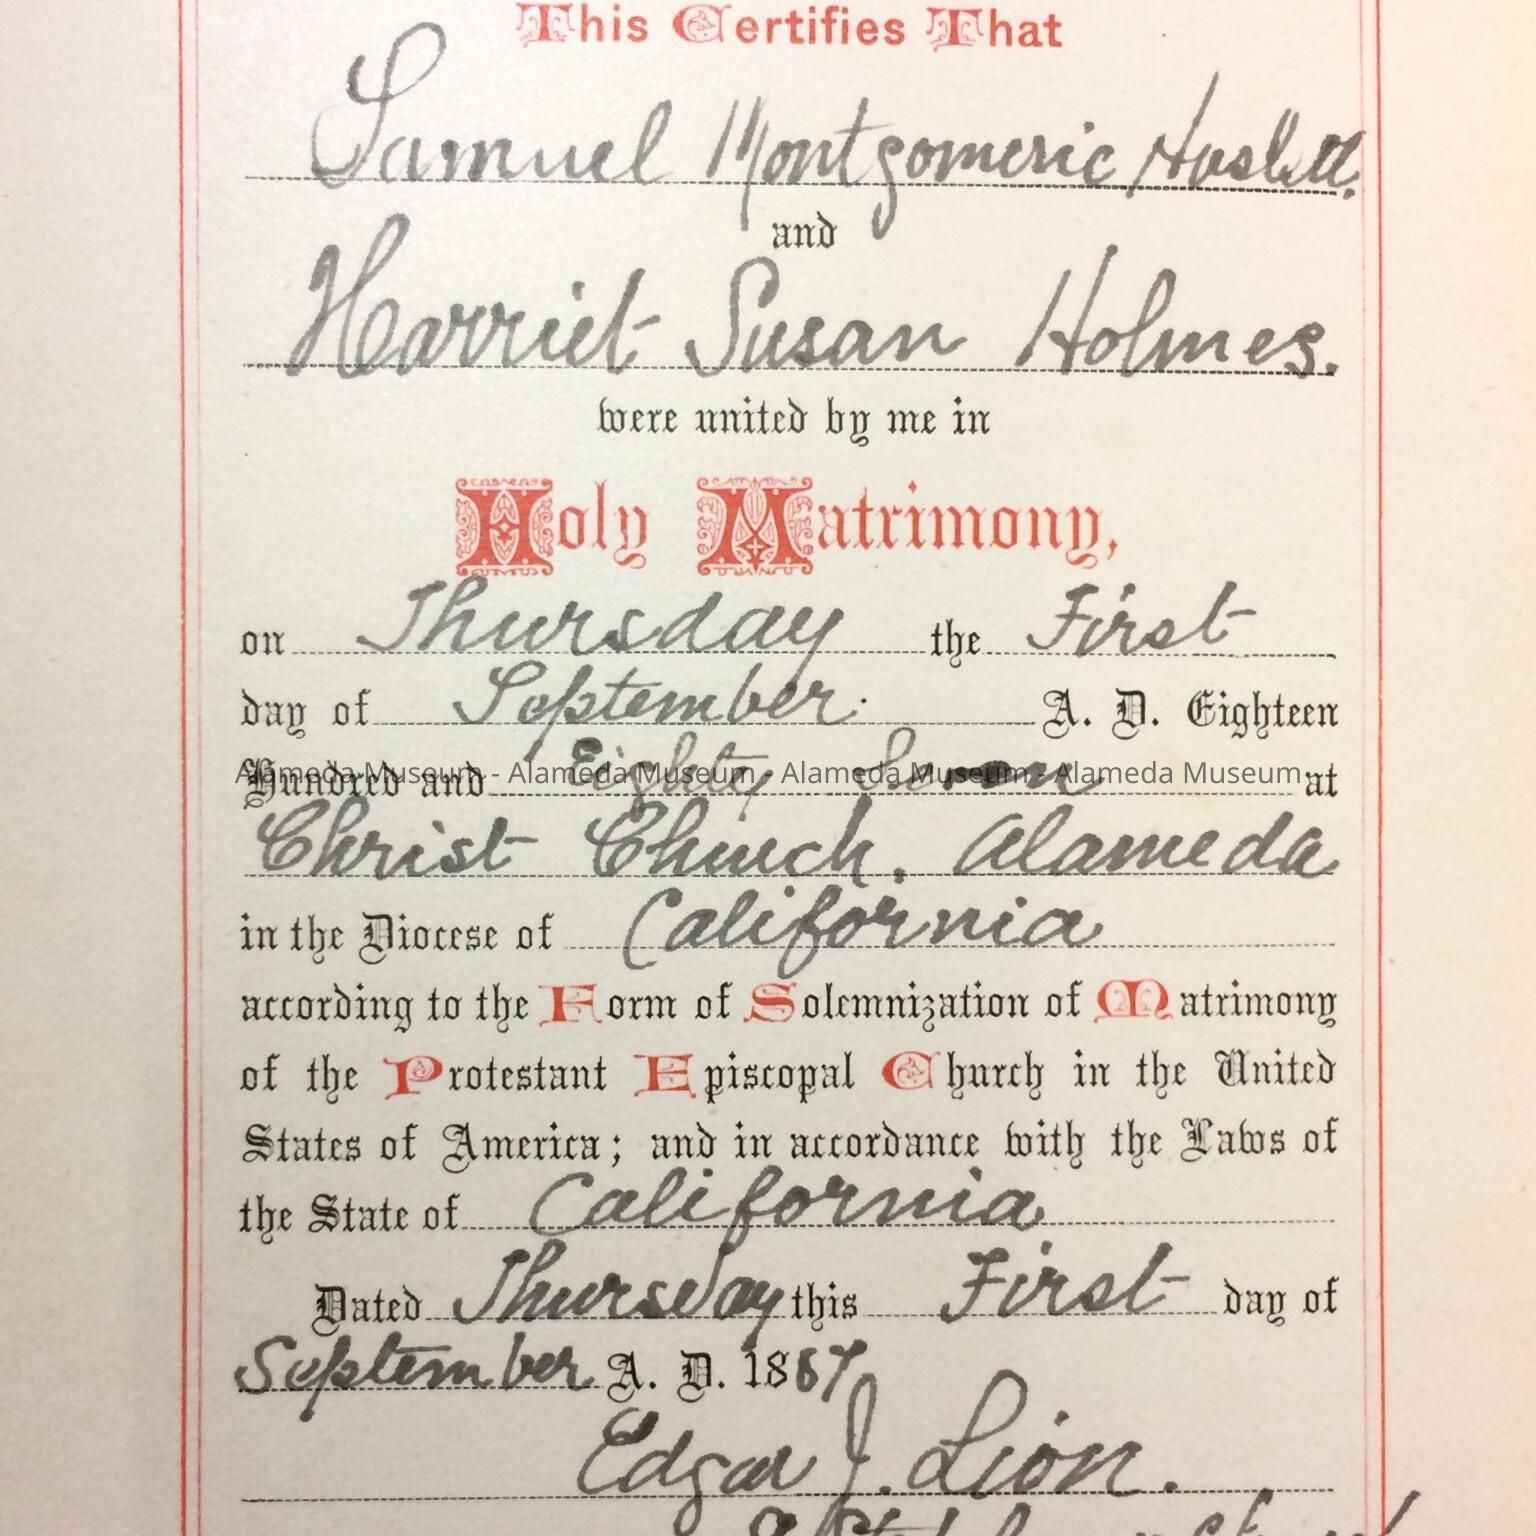 This Certifies That
Samuel Montgomerie Haslett.
and
Harriet Susan Holmes.
were united by me in
Holy Matrimony,
on Thursday the First
day of September. A. D. Eighteen
Hundred and Eighty Seven at
Alameda Museum - Alameda Museum - Alameda Museum - Alameda Museum
Christ Church. Alameda
in the Diocese of California
according to the Form of Solemnization of Matrimony
of the Protestant Episcopal Church in the United
States of America; and in accordance with the Laws of
the State of California
Dated Thursday this First day of
September A. D. 1887
Edgar J. Lion.